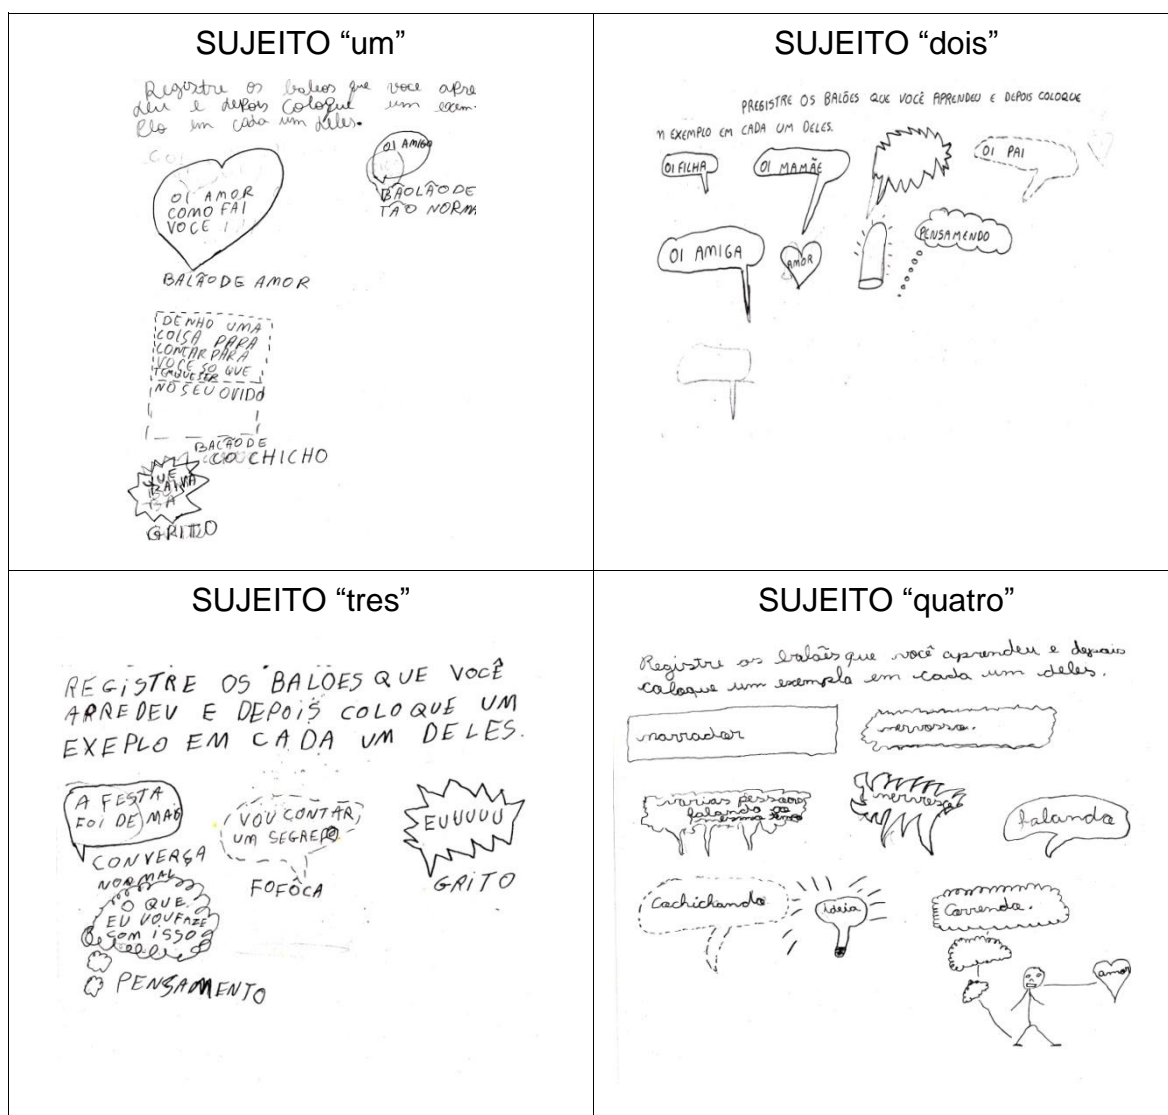 SUJEITO “um”
Registre os baloes que voce apre
deu e depois coloque um exem-
plo em cada um deles.
OI AMOR
COMO FAI
VOCE !
BALÃO DE AMOR
OI AMIGO
BÃOLÃO DE
TÃO NORMA
DENHO UMA
COISA PARA
CONTAR PARA
VOCE SO QUE
TEMQUESER
NO SEU OVIDO
BALÃO DE
CO CHICHO
QUE
RAIVA
GRITO
SUJEITO “dois”
PREGISTRE OS BALÕES QUE VOCÊ APRENDEU E DEPOIS COLOQUE
M EXEMPLO EM CADA UM DELES.
OI FILHA
OI MAMÃE
OI PAI
OI AMIGA
AMOR
PENSAMENDO
SUJEITO “tres”
REGISTRE OS BALÕES QUE VOCÊ
ARREDEU E DEPOIS COLOQUE UM
EXEPLO EM CADA UM DELES.
A FESTA
FOI DE MAÕ
CONVERSA
NORMAL
VOU CONTAR
UM SEGREDO
FOFÔCA
EUUUUU
GRITO
O QUE
EU VOU FAZE
SOM ISSO
PENSAMENTO
SUJEITO “quatro”
Registre os balões que você aprendeu e depois
coloque um exemplo em cada um deles.
narrador
nervosso.
varias pessoas
falando ao
mesma
nervosa
falando
Cachichando
ideia
Correndo.
amor